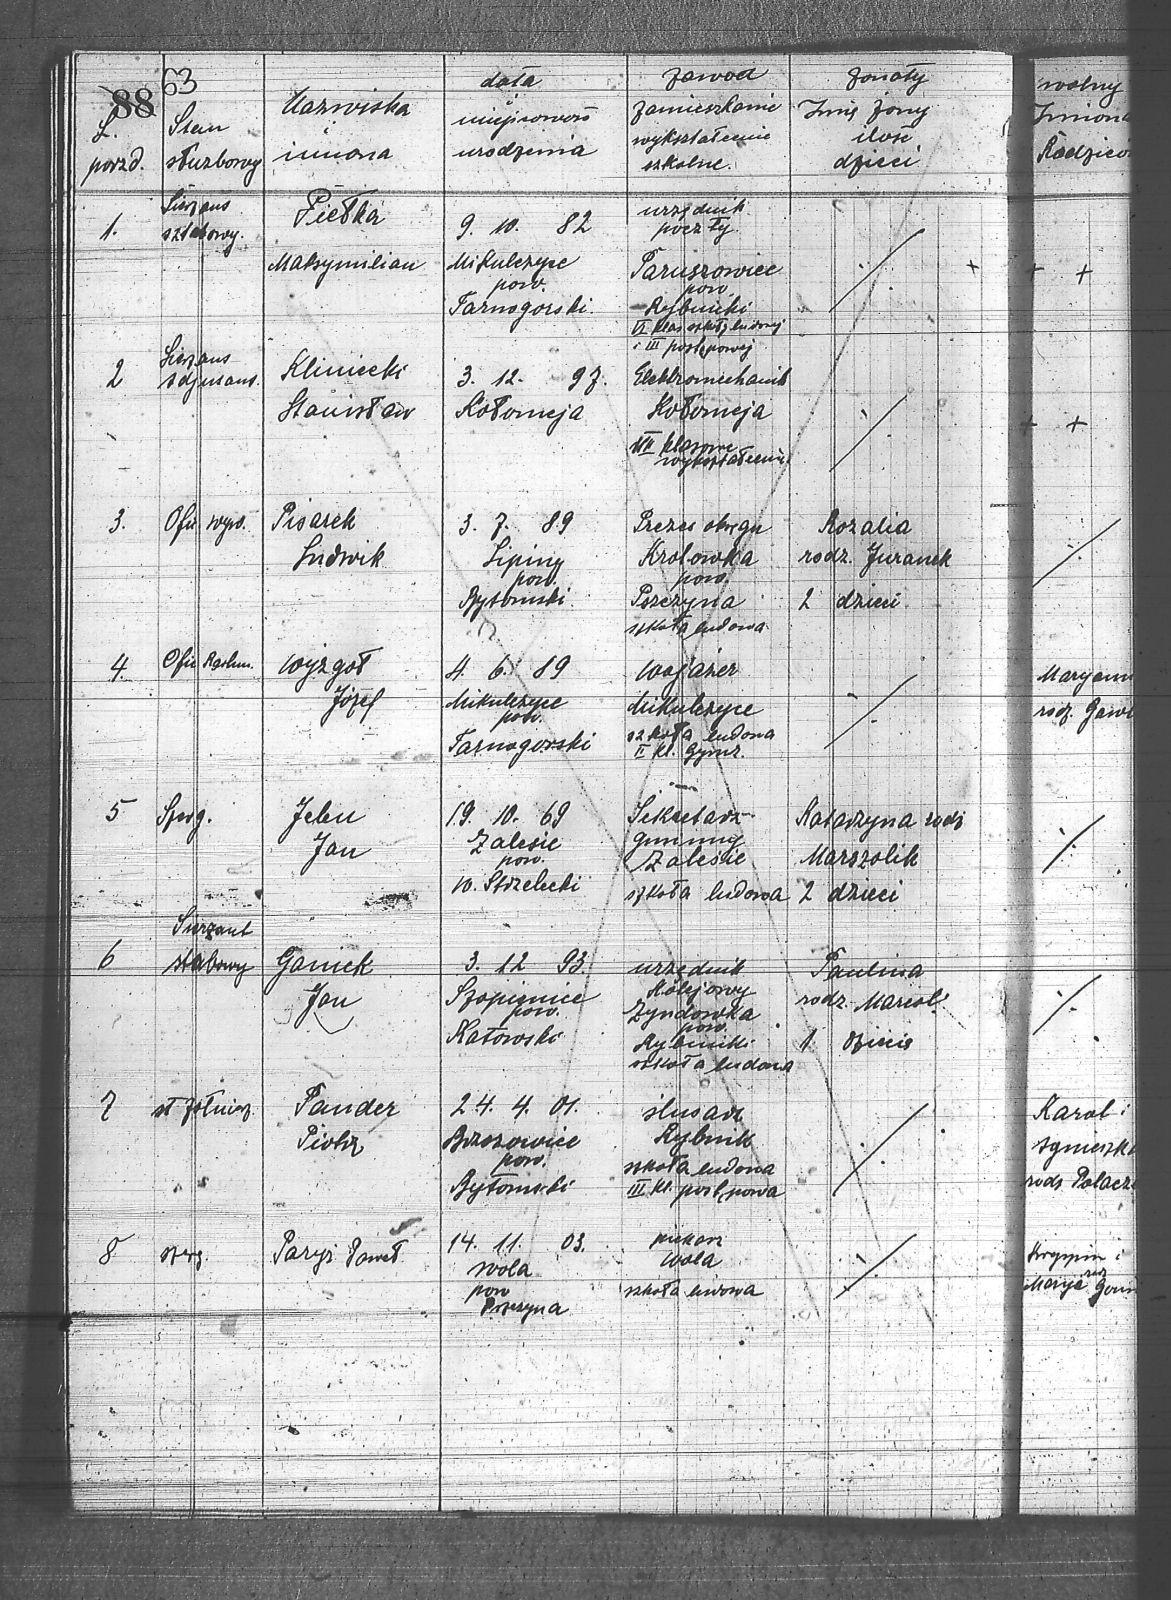 88 63
L. porzd.
Stan służbowy
Nazwiska imiona
data miejscowość urodzenia
zawód zamieszkanie wykształcenie szkolne.
żonaty Imię żony ilość dzieci
wolny Imiona Rodzicó
1.
Sierżans sztabowy.
Pietka
Maksymilian
9. 10. 82
Mikulczyce
pow.
Tarnogorski.
urzędnik
poczty.
Paruszowiec
pow.
Rybnicki
VI klas szkoły ludowej
i III postępowej
+ + +
2
Sierżans
adjutans.
Kliniecki
Stanisław
3. 12. 97.
Kołomeja
Elektromechanik
Kołomeja
klasowe
wykształcenie
+ +
3.
Ofic. wyw.
Pisarek
Ludwik
3. 7. 89
Lipiny
pow.
Bytomski
Prezes okręgu
Krolowka
pow.
Pszczyna
szkoła ludowa
Rozalia
rodz. Juranek
2 dzieci
4.
Ofic. Rachun.
Wyżgoł
Józef
4. 6. 89
Mikulczyce
pow.
Tarnogorski
Wojażer
Mikulczyce
szkoła ludowa
II kl. Gymz.
Maryann
rodz. Gawl
5
Szerg.
Jelen
Jan
19. 10. 69
Zalesie
pow.
w. Strzelecki
Sekretarz
gminny
Zalesie
szkoła ludowa
Katarzyna rodz
Marszolik
2 dzieci
6
Sierżant
stabowy
Ganiek
Jan
3. 12 93.
Szopienice
pow.
Katowski
urzędnik
Kolejowy
Żyndowka
pow.
Rybnicki
szkoła ludowa
Paulina
rodz. Marcol.
1. dziecię
7
st. żołnierz.
Pander
Piotr
24. 4. 01.
Brzozowice
pow.
Bytomski
ślusarz
Rybnik
szkoła ludowa
III kl. postępowa
Karol i
Agnieszka
rodz Polacz
8
szerg.
Paryż Paweł
14. 11. 03.
Wola
pow
Pszczyna
piekarz
Wola
szkoła ludowa
Kryspin i
Marya rodz